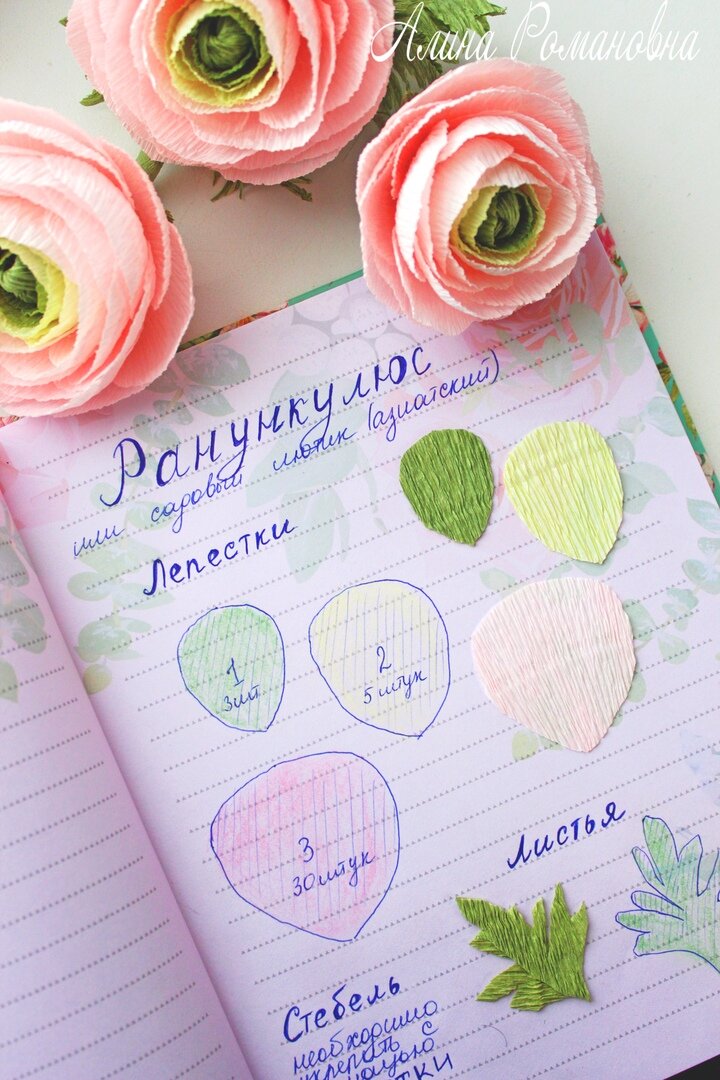 Алина Романовна
Ранункулюс
или садовый лютик (азиатский)
Лепестки
1
3шт
2
5 штук
3
30штук
Листья
Стебель
необходимо
с